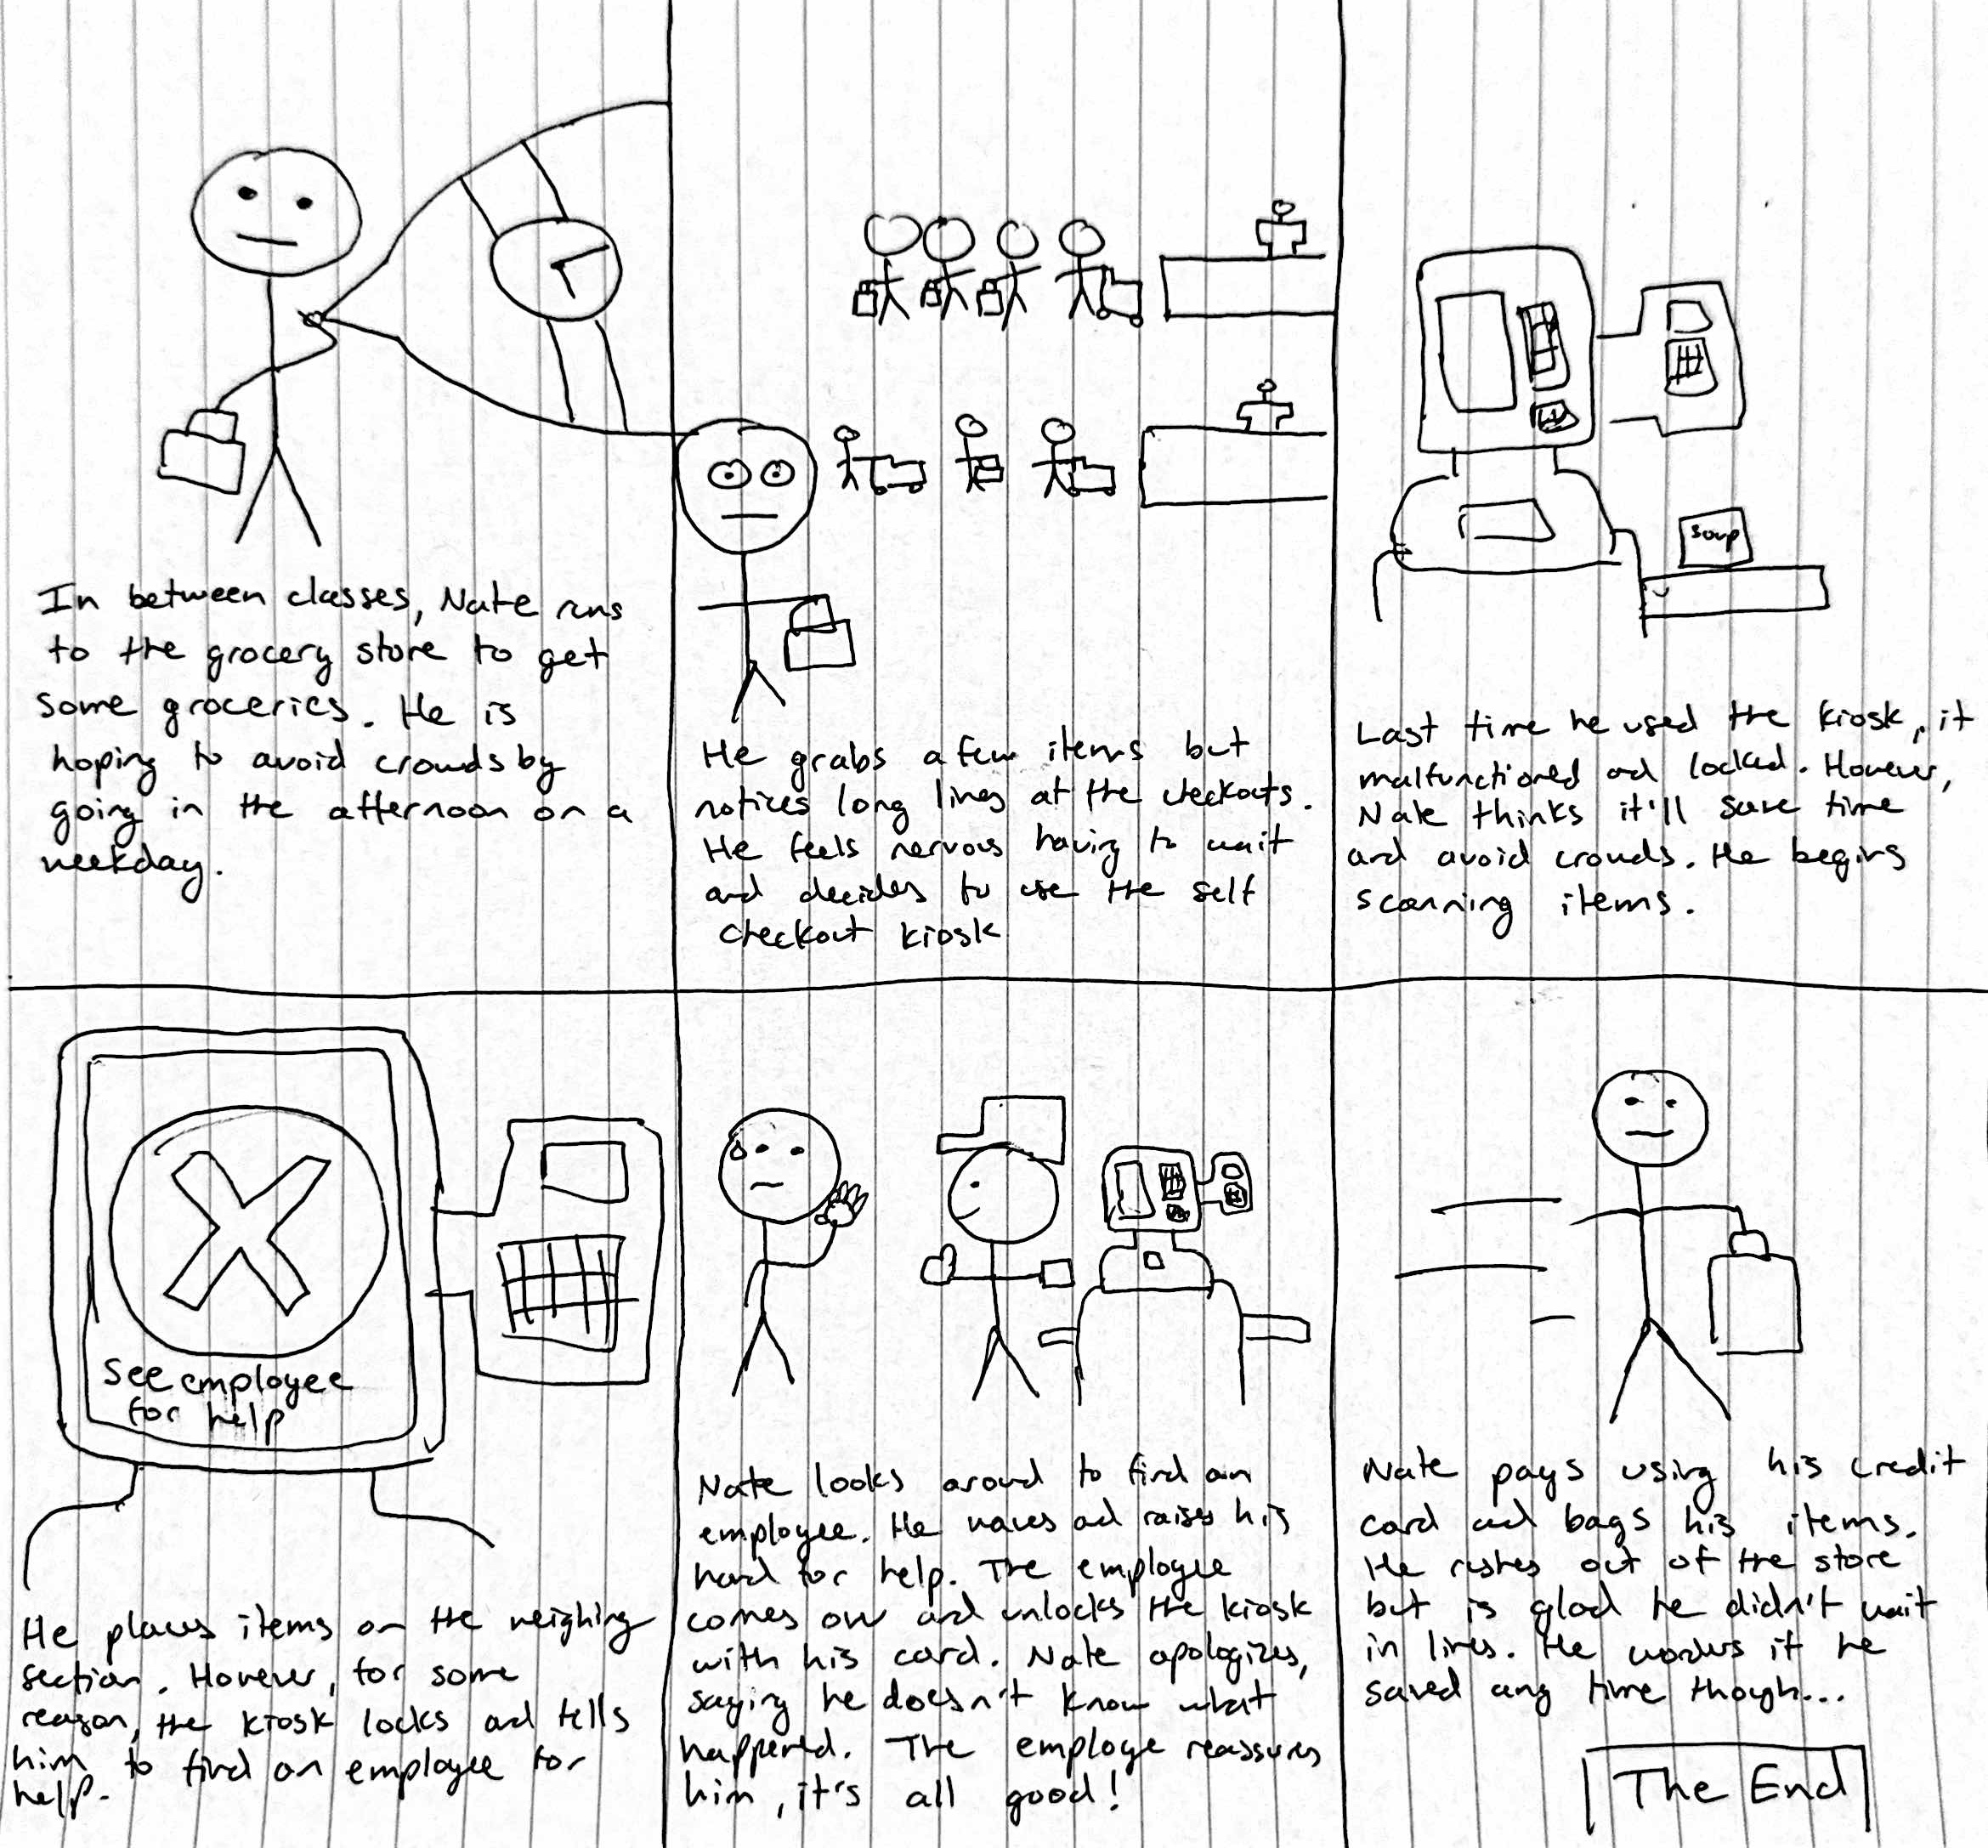 In between classes, Nate runs
to the grocery store to get
some groceries. He is
hoping to avoid crowds by
going in the afternoon on a
weekday.
He grabs a few items but
notices long lines at the checkouts.
He feels nervous having to wait
and decides to use the self
checkout kiosk
soup
Last time he used the kiosk, it
malfunctioned ad locked. However,
Nate thinks it'll save time
and avoid crowds. He begins
scanning items.
See employee
for help
He places items on the weighing
section. However, for some
reason, the kiosk locks ad tells
him to find an employee for
help.
Nate looks around to find an
employee. He waves ad raises his
hand for help. The employee
comes over and unlocks the kiosk
with his card. Nate apologizes,
saying he doesn't know what
happened. The employe reassures
him, it's all good!
Nate pays using his credit
card and bags his items.
He rushes out of the store
but is glad he didn't wait
in lines. He wonders if he
saved any time though...
The End